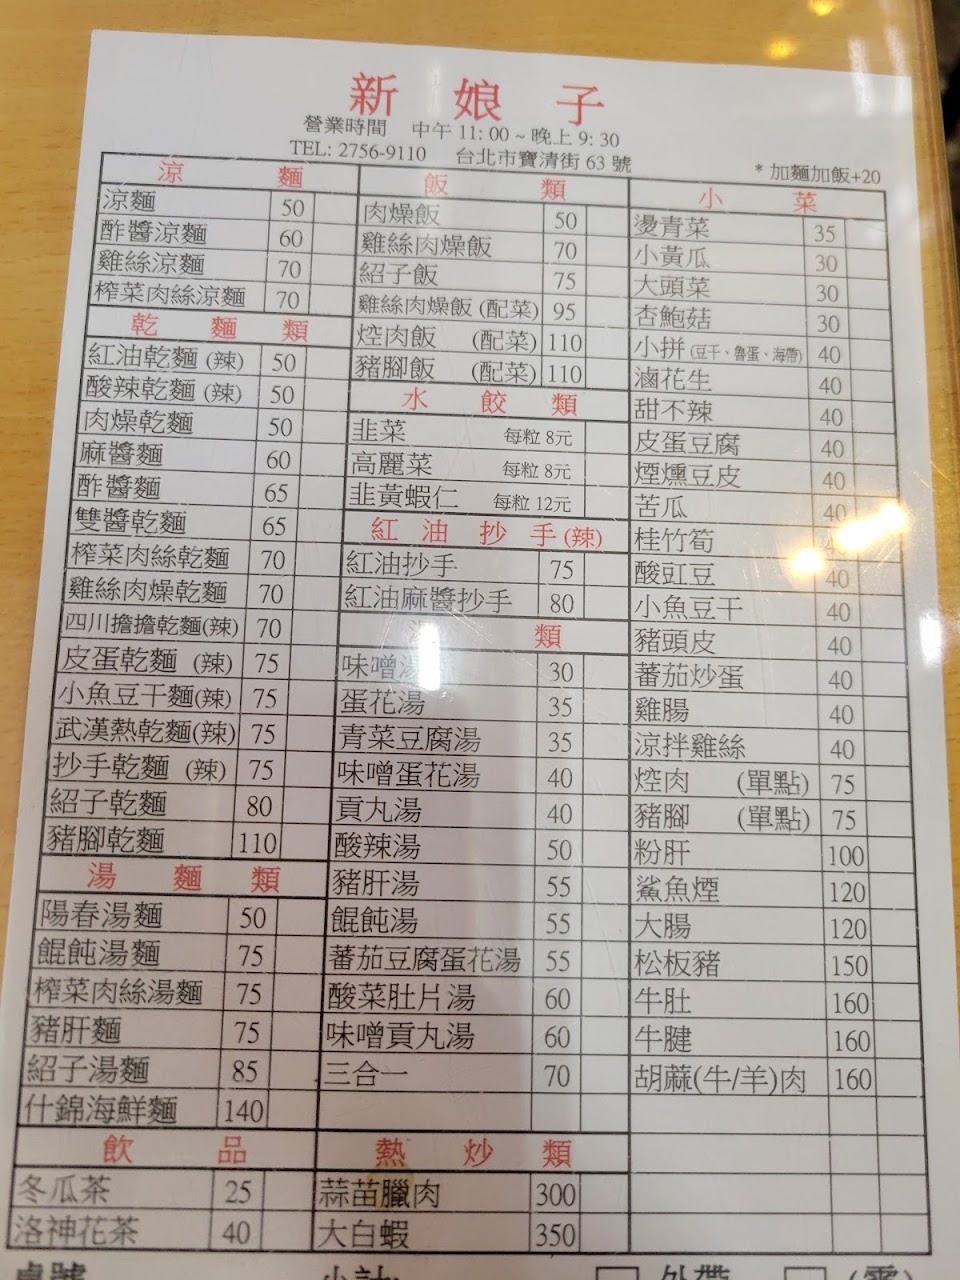 新 娘 子
營業時間 中午 11: 00 ~ 晚上 9: 30
TEL: 2756-9110 台北市寶清街 63 號
* 加麵加飯+20
涼 麵
涼麵 50
酢醬涼麵 60
雞絲涼麵 70
榨菜肉絲涼麵 70
乾 麵 類
紅油乾麵 (辣) 50
酸辣乾麵 (辣) 50
肉燥乾麵 50
麻醬麵 60
酢醬麵 65
雙醬乾麵 65
榨菜肉絲乾麵 70
雞絲肉燥乾麵 70
四川擔擔乾麵(辣) 70
皮蛋乾麵 (辣) 75
小魚豆干麵(辣) 75
武漢熱乾麵(辣) 75
抄手乾麵 (辣) 75
紹子乾麵 80
豬腳乾麵 110
湯 麵 類
陽春湯麵 50
餛飩湯麵 75
榨菜肉絲湯麵 75
豬肝麵 75
紹子湯麵 85
什錦海鮮麵 140
飲 品
冬瓜茶 25
洛神花茶 40
飯 類
肉燥飯 50
雞絲肉燥飯 70
紹子飯 75
雞絲肉燥飯 (配菜) 95
焢肉飯 (配菜) 110
豬腳飯 (配菜) 110
水 餃 類
韭菜 每粒 8元
高麗菜 每粒 8元
韭黃蝦仁 每粒 12元
紅 油 抄 手 (辣)
紅油抄手 75
紅油麻醬抄手 80
湯 類
味噌湯 30
蛋花湯 35
青菜豆腐湯 35
味噌蛋花湯 40
貢丸湯 40
酸辣湯 50
豬肝湯 55
餛飩湯 55
蕃茄豆腐蛋花湯 55
酸菜肚片湯 60
味噌貢丸湯 60
三合一 70
熱 炒 類
蒜苗臘肉 300
大白蝦 350
小 菜
燙青菜 35
小黃瓜 30
大頭菜 30
杏鮑菇 30
小拼 (豆干、魯蛋、海帶) 40
滷花生 40
甜不辣 40
皮蛋豆腐 40
煙燻豆皮 40
苦瓜 40
桂竹筍
酸豇豆 40
小魚豆干 40
豬頭皮 40
蕃茄炒蛋 40
雞腸 40
涼拌雞絲 40
焢肉 (單點) 75
豬腳 (單點) 75
粉肝 100
鯊魚煙 120
大腸 120
松板豬 150
牛肚 160
牛腱 160
胡蔴(牛/羊)肉 160
桌號 小計: 外帶